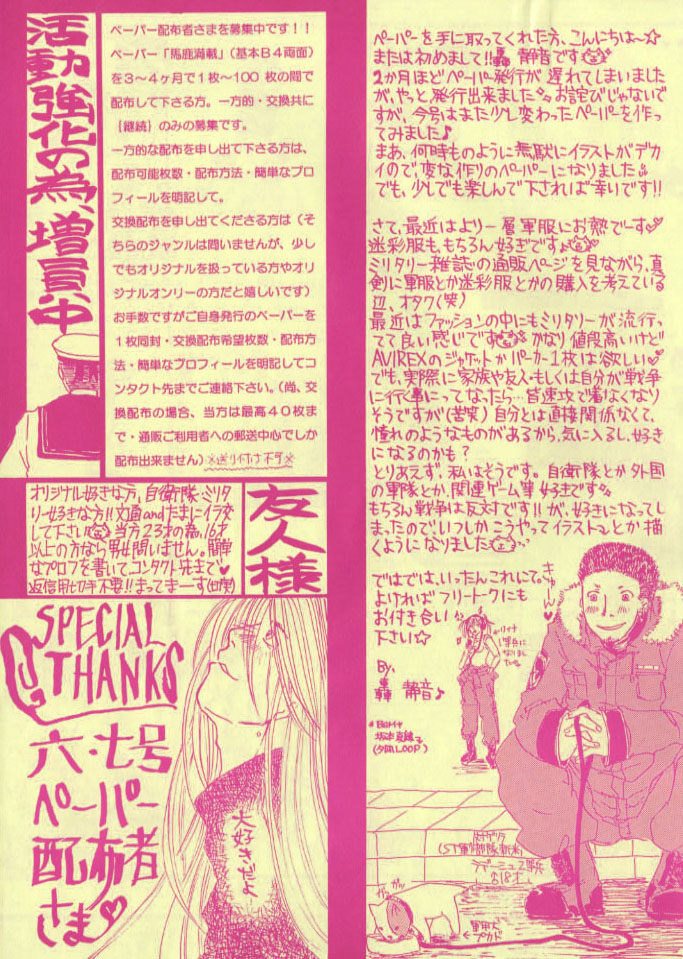 活動強化の為、増員中
ペーパー配布者さまを募集中です！！
ペーパー「馬鹿満載」（基本Ｂ４両面）
を３〜４ヶ月で１枚〜100 枚の間で
配布して下さる方。一方的・交換共に
｛継続｝のみの募集です。
一方的な配布を申し出て下さる方は、
配布可能枚数・配布方法・簡単なプロ
フィールを明記して。
交換配布を申し出てくださる方は（そ
ちらのジャンルは問いませんが、少し
でもオリジナルを扱っている方やオリ
ジナルオンリーの方だと嬉しいです）
お手数ですがご自身発行のペーパーを
１枚同封・交換配布希望枚数・配布方
法・簡単なプロフィールを明記してコン
タクト先までご連絡下さい。（尚、交
換配布の場合、当方は最高４０枚ま
で・通販ご利用者への郵送中心でしか
配布出来ません）※送り付け不可※
友人様
オリジナル好きな方，自衛隊・ミリタ
リー好きな方!!文通andたまにイラ交
して下さい 当方23才の為，16才
以上の方なら男女問いません。簡単
なプロフを書いて，コンタクト先まで♡
返信用切手不要!!まってまーす(切実)
SPECIAL
THANKS
六・七号
ペーパー
配布者
さま♡
大好きだよ
ペーパーを手に取ってくれた方、こんにちは〜☆
または初めまして!!轟 静音です
2か月ほどペーパー発行が 遅れてしまいました
が，やっと，発行出来ました お詫びじゃないで
すが、今号はまた少し変わったペーパーを作っ
てみました♪
まあ、何時ものように無駄にイラストがデカ
イので，変な作りのペーパーになりました
でも、少しでも楽しんで下されば幸いです!!
さて，最近はより一層軍服にお熱でーす♡
迷彩服も，もちろん好きです♪
ミリタリー雑誌の通販ページを見ながら，真
剣に軍服とか迷彩服とかの購入を考えている
辺，オタク(笑)
最近はファッションの中にもミリタリーが流行っ
てて良い感じです かなり値段高いけど
AVIREXのジャケットかパーカー1枚は欲しい♡
でも，実際に家族や友人・もしくは自分が戦争
に行く事にってなったら…音速攻で着なくなり
そうですが(苦笑)自分とは直接関係なくて，
憧れのようなものがあるから，気に入るし，好き
になるのかも？
とりあえず，私はそうです。自衛隊とか外国
の軍隊とか，関連ゲーム等好きです
もちろん戦争は反対です!!が，好きになってし
まったので，いつしかこうやってイラストとか描
くようになりました
ではでは，いったんこれにて。
よければフリートークにも
お付き合い
下さい☆
By,
轟 静音♪
きゅーん♡
(夕凪LOOP)
ガッガッ
←軍用犬